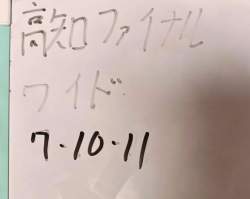 高知ファイナル
ワイド
7.10.11